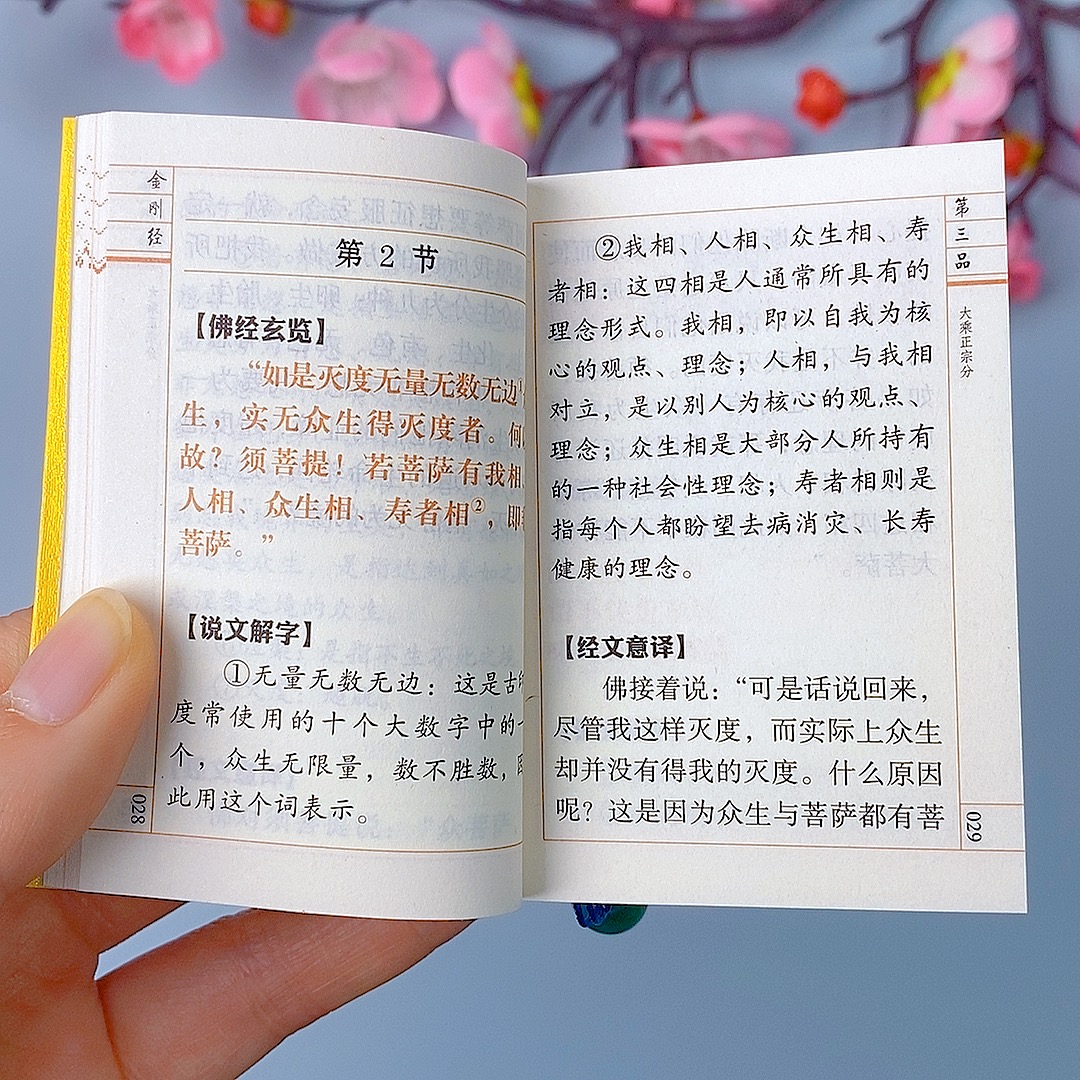 金刚经
第2节
【佛经玄览】
“如是灭度无量无数无边
生，实无众生得灭度者。何
故？须菩提！若菩萨有我相
人相、众生相、寿者相②，即
菩萨。”
【说文解字】
①无量无数无边：这是古
度常使用的十个大数字中的一
个，众生无限量，数不胜数，因
此用这个词表示。
028
第三品
大乘正宗分
②我相、人相、众生相、寿
者相：这四相是人通常所具有的
理念形式。我相，即以自我为核
心的观点、理念；人相，与我相
对立，是以别人为核心的观点、
理念；众生相是大部分人所持有
的一种社会性理念；寿者相则是
指每个人都盼望去病消灾、长寿
健康的理念。
【经文意译】
佛接着说：“可是话说回来，
尽管我这样灭度，而实际上众生
却并没有得我的灭度。什么原因
呢？这是因为众生与菩萨都有菩
029